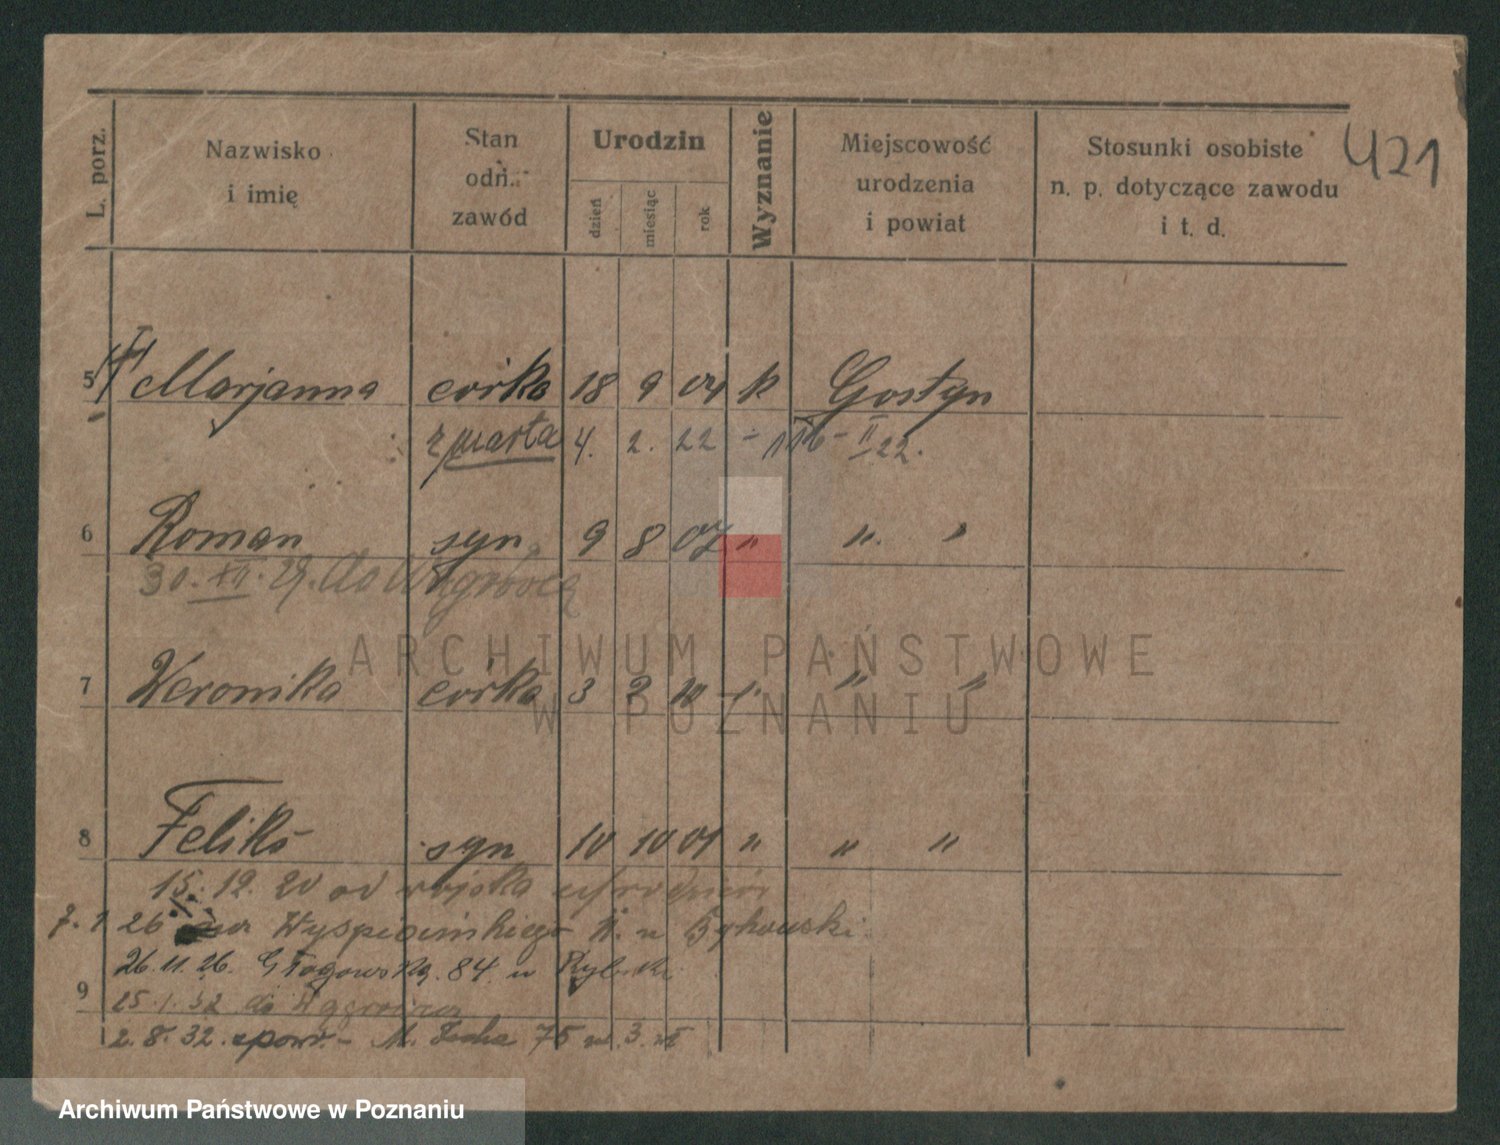 L. porz.
Nazwisko
i imię
Stan
odn.
zawód
Urodzin
dzień
miesiąc
rok
Wyznanie
Miejscowość
urodzenia
i powiat
Stosunki osobiste
n. p. dotyczące zawodu
i t. d.
421
5 Marjanna córka 18 9 04 k Gostyn
zmarła 4. 2. 22 - 116 - II 22.
6 Roman syn 9 8 07 " " "
30. XII. 29. do Wągrówca
7 Weronika córka 3 2 10 " " "
8 Feliks syn 10 10 01 " " "
15. 12. 20 od wojska
7. 1 26 Wyspiańskiego u
26. 11. 26. Głogowska. 84. u
9 25. 1. 32 do
2. 8. 32. spowr. - M. Focha 75 m. 3.
ARCHIWUM PAŃSTWOWE
W POZNANIU
Archiwum Państwowe w Poznaniu